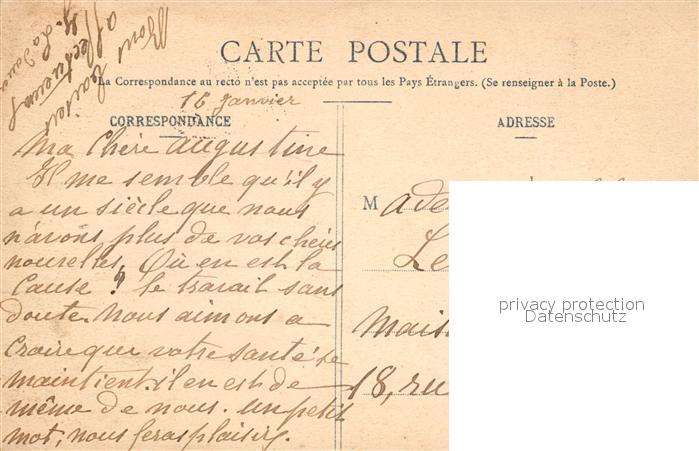 CARTE POSTALE
La Correspondance au recto n'est pas acceptée par tous les Pays Étrangers. (Se renseigner à la Poste.)
16 Janvier
CORRESPONDANCE
ADRESSE
Ma Chère Augustine
Il me semble qu'il y
a un siècle que nous
n'avons plus de vos chères
nouvelles. Où en est la
Cause? le travail sans
doute. Nous aimons a
Croire que votre santé se
maintient. il en est de
même de nous. un petit
mot, nous feras plaisir.
Bons baisers
affectueux
M
Le
Mais
18, ru
privacy protection
Datenschutz